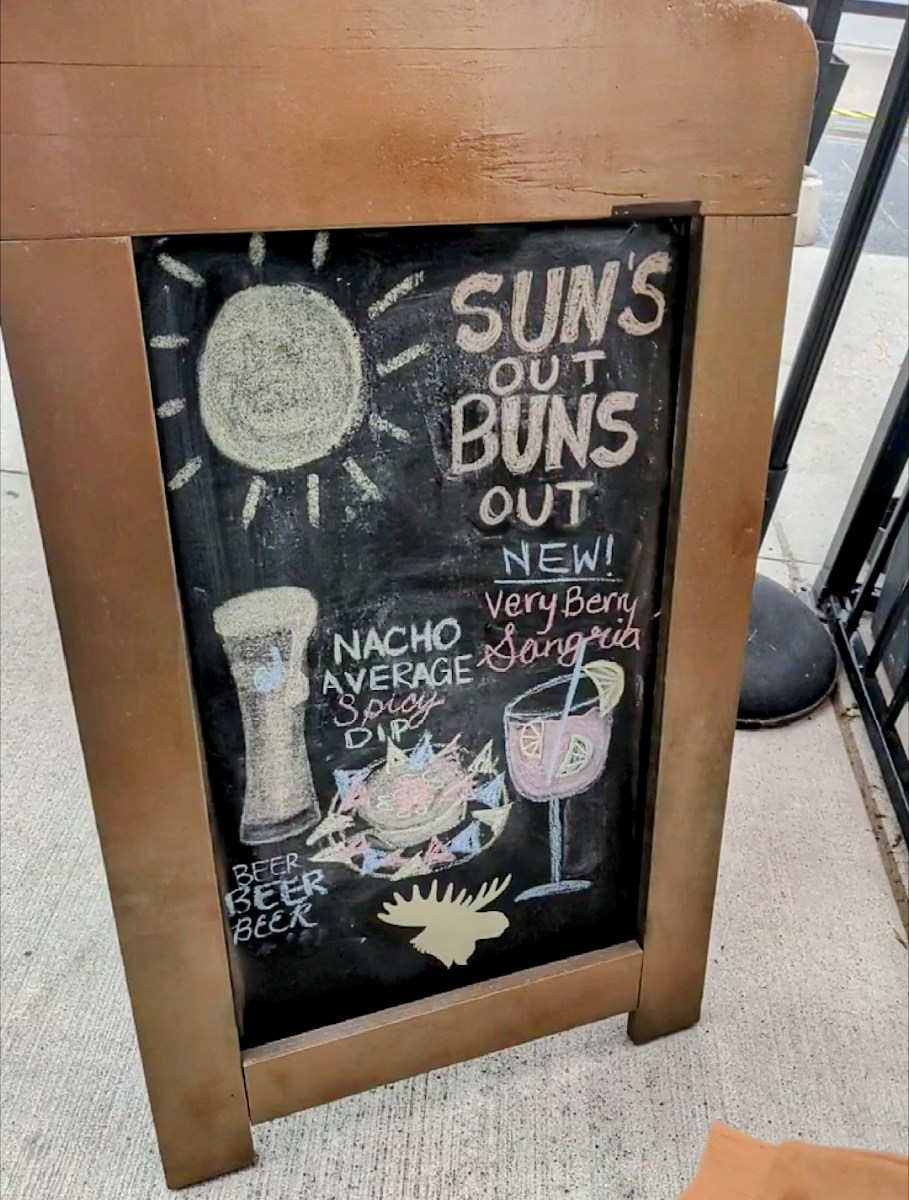 SUN'S
OUT
BUNS
OUT
NEW!
Very Berry
Sangria
NACHO
AVERAGE
Spicy
DIP
BEER
BEER
BEER